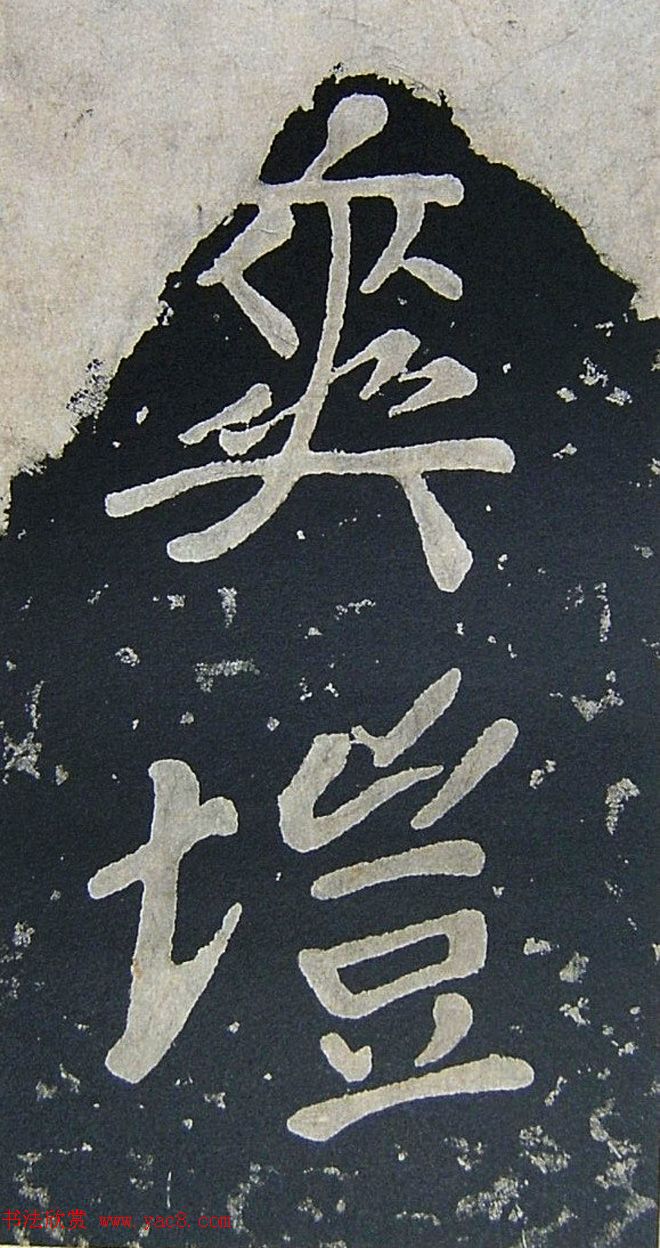 爽
塏
书法欣赏 www.yac8.com